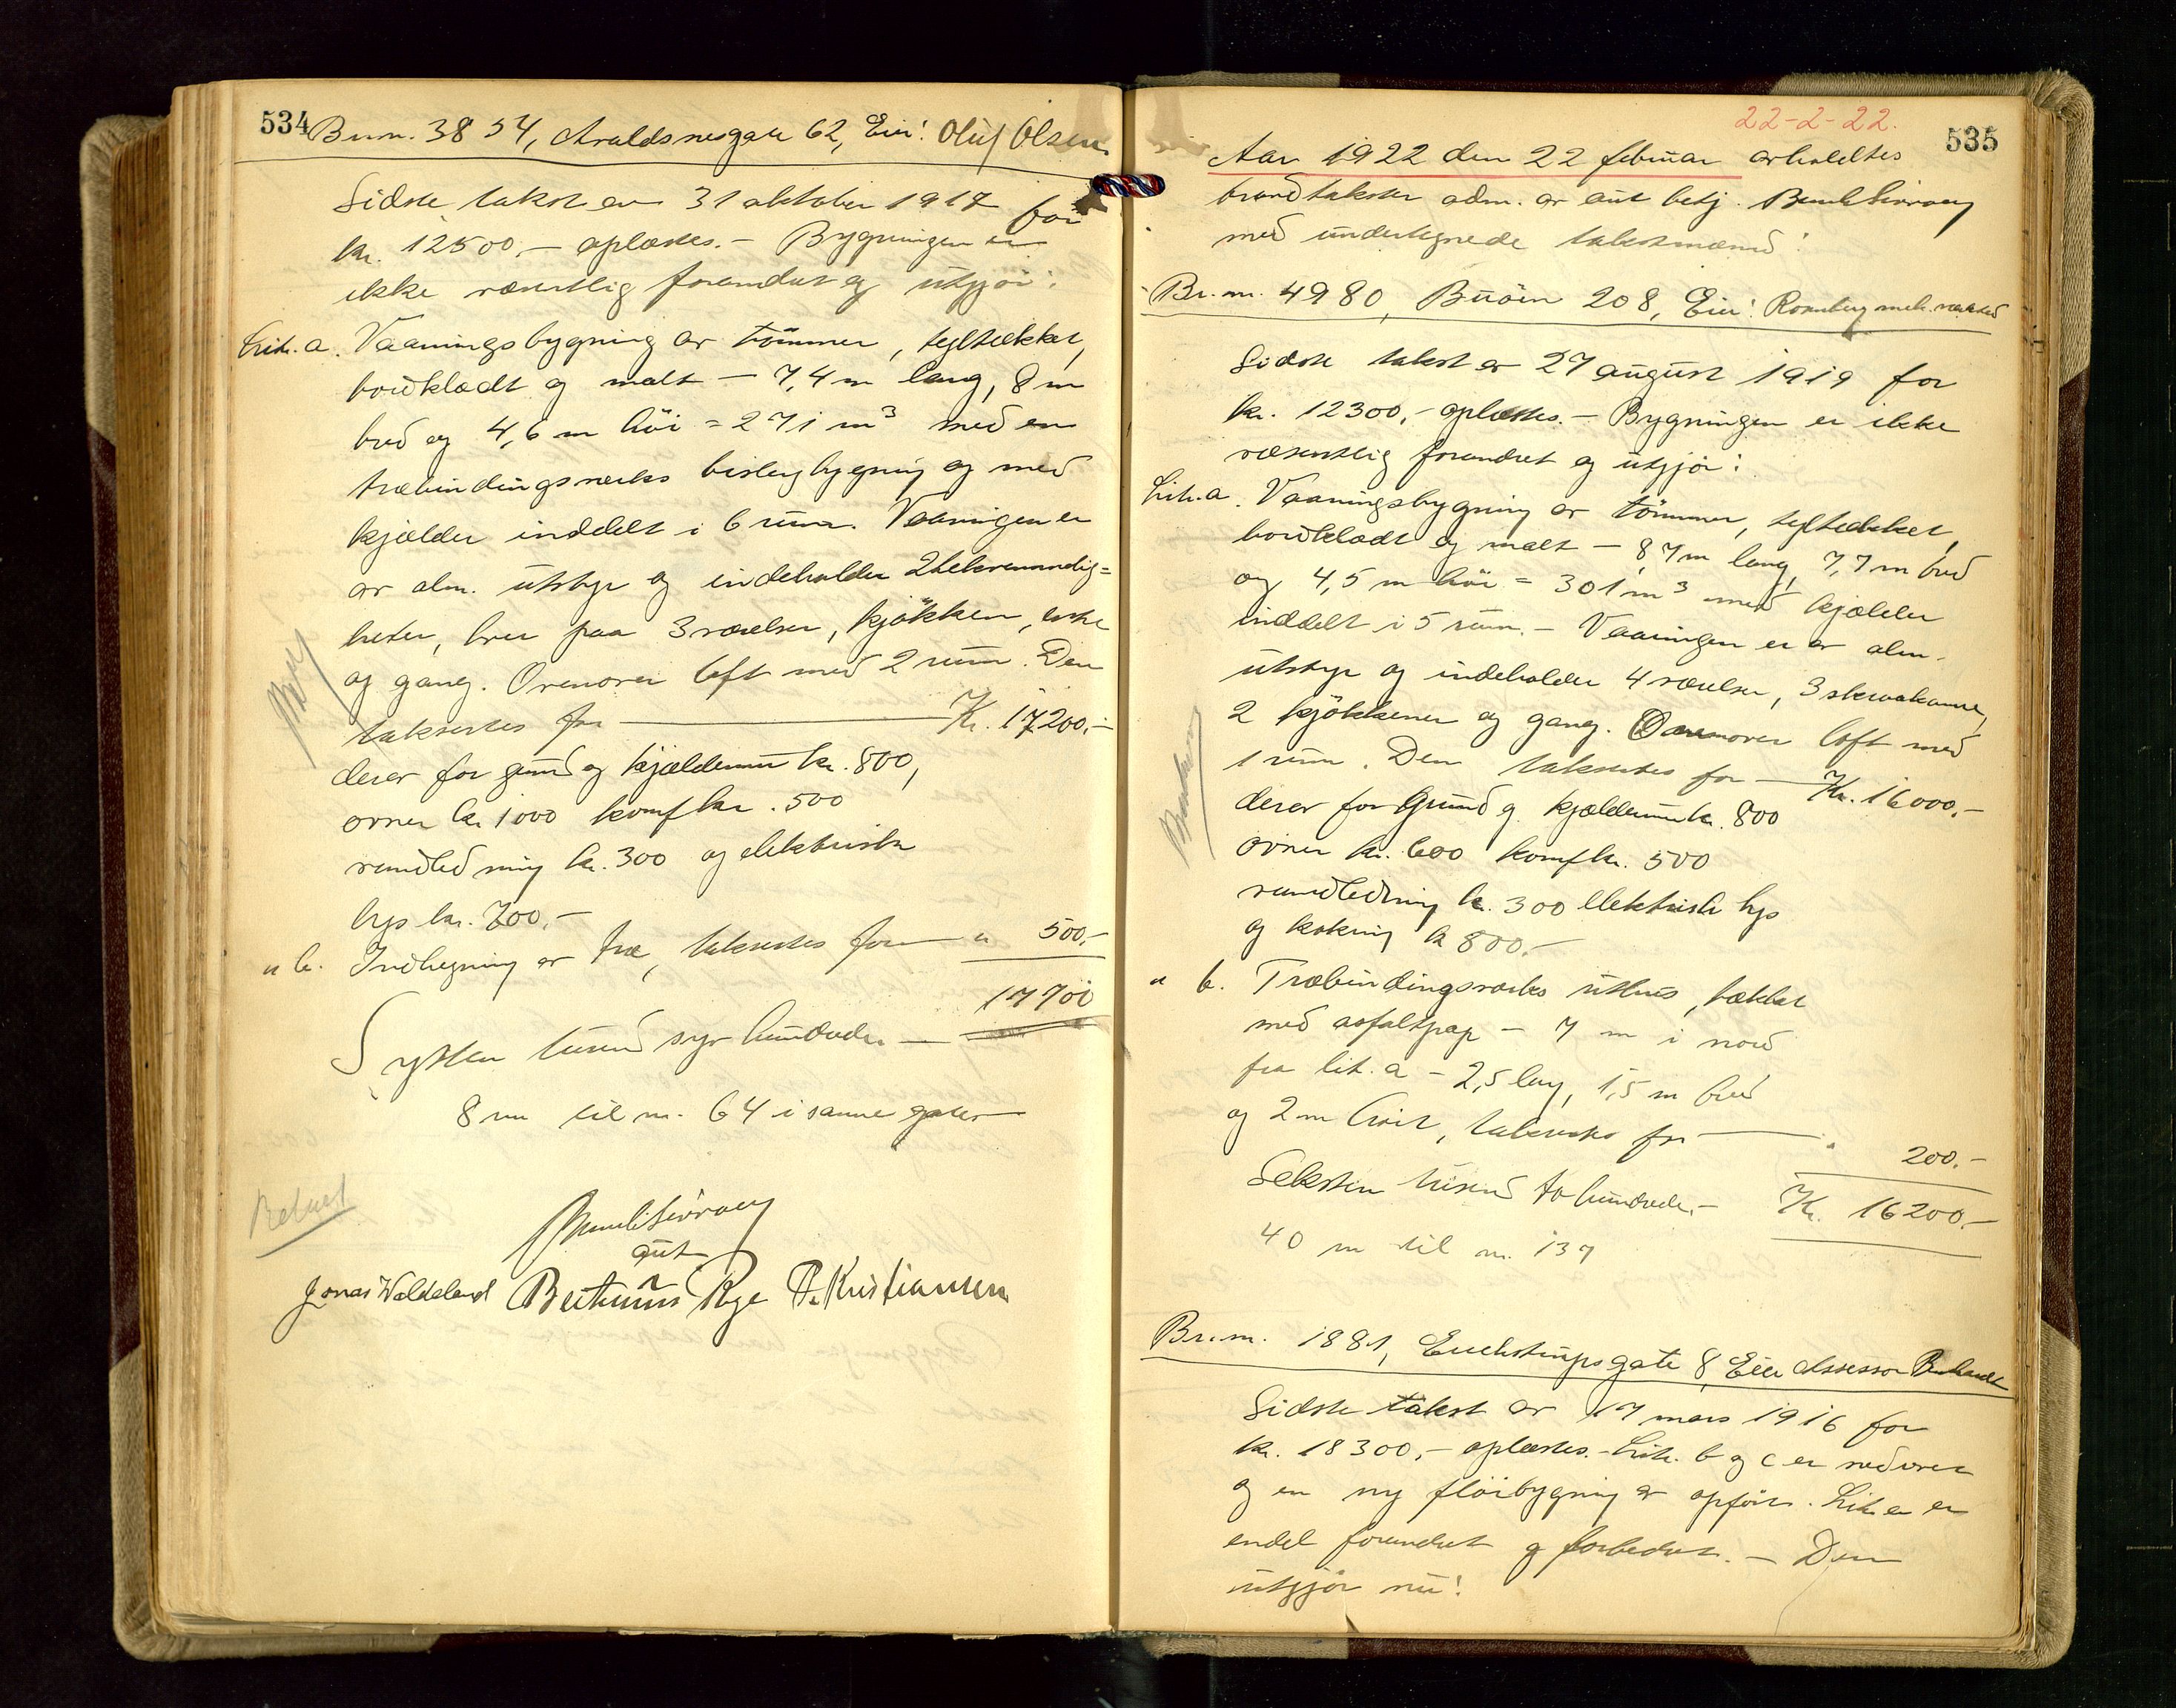 534
Br.nr. 3854, Avaldsnesgate 62, Eier: Oluf Olsen.
Sidste takst av 31 oktober 1917 for
kr. 12500,- oplæstes.- Bygningen er
ikke væsentlig forandret og utgjør:
Litr. a. Vaaningsbygning av tømmer, tegltækket,
bordklædt og malt - 7,4 m lang, 8 m
bred og 4,6 m høi = 271 m³ med en
træbindingsverks bislagbygning og med
kjælder inddelt i 6 rum. Vaaningen er
av alm. utstyr og indeholder 2 beleveimndig=
heter, hver paa 3 værelser, kjøkken, entre
og gang. Ovenover loft med 2 rum. Den
taksertes for Kr. 17200.-
derav for grund og kjælderrum kr. 800,
ovner kr 1000 komf kr. 500
vandledning kr. 300 og elektrisk
lys kr. 700.-
" b. Indhegning av træ, taksertes for " 500,-
17700
Sytten tusend syv hundrede.-
8 m til nr. 64 i samme gate
Betalt
aut
Jonas Waldeland Bertinius Rege P. Kristiansen
22-2-22.
535
Aar 1922 den 22 februar avholdtes
brandtakster adm. av aut betj.
med undertegnede takstmænd:
Br.nr. 4980, Buøen 208, Eier: Rosenberg mek. verksted
Sidste takst av 27 august 1919 for
kr. 12300,- oplæstes.- Bygningen er ikke
væsentlig forandret og utgjør:
Litr. a. Vaaningsbygning av tømmer, tegltækket,
bordklædt og malt - 8,7 m lang, 7,7 m bred
og 4,5 m høi = 301 m³ med kjælder
inddelt i 5 rum.- Vaaningen er av alm.
utstyr og indeholder 4 værelser, 3 skraakamre,
2 kjøkkener og gang. Ovenover loft med
1 rum. Den taksertes for Kr. 16000.-
derav for grund og kjælderrum kr. 800
ovner kr. 600 komf kr. 500
vandledning kr. 300 elektrisk lys
og kokning kr 800.-
" b. Træbindingsverks uthus, tækket
med asfaltpap - 7 m i nord
fra lit. a - 2,5 lang, 1,5 m bred
og 2 m høit, taksertes for " 200.-
Seksten tusend to hundrede.- Kr. 16200.-
40 m til nr. 137
Br.nr. 1881, Erichstrupsgate 8, Eier Assessor
Sidste takst av 17 mars 1916 for
kr. 18300,- oplæstes.- Litr. b og c er nedrevet
og en ny fløibygning er opført. Litr a er
endel forandret og forbedret.- Den
utgjør nu: